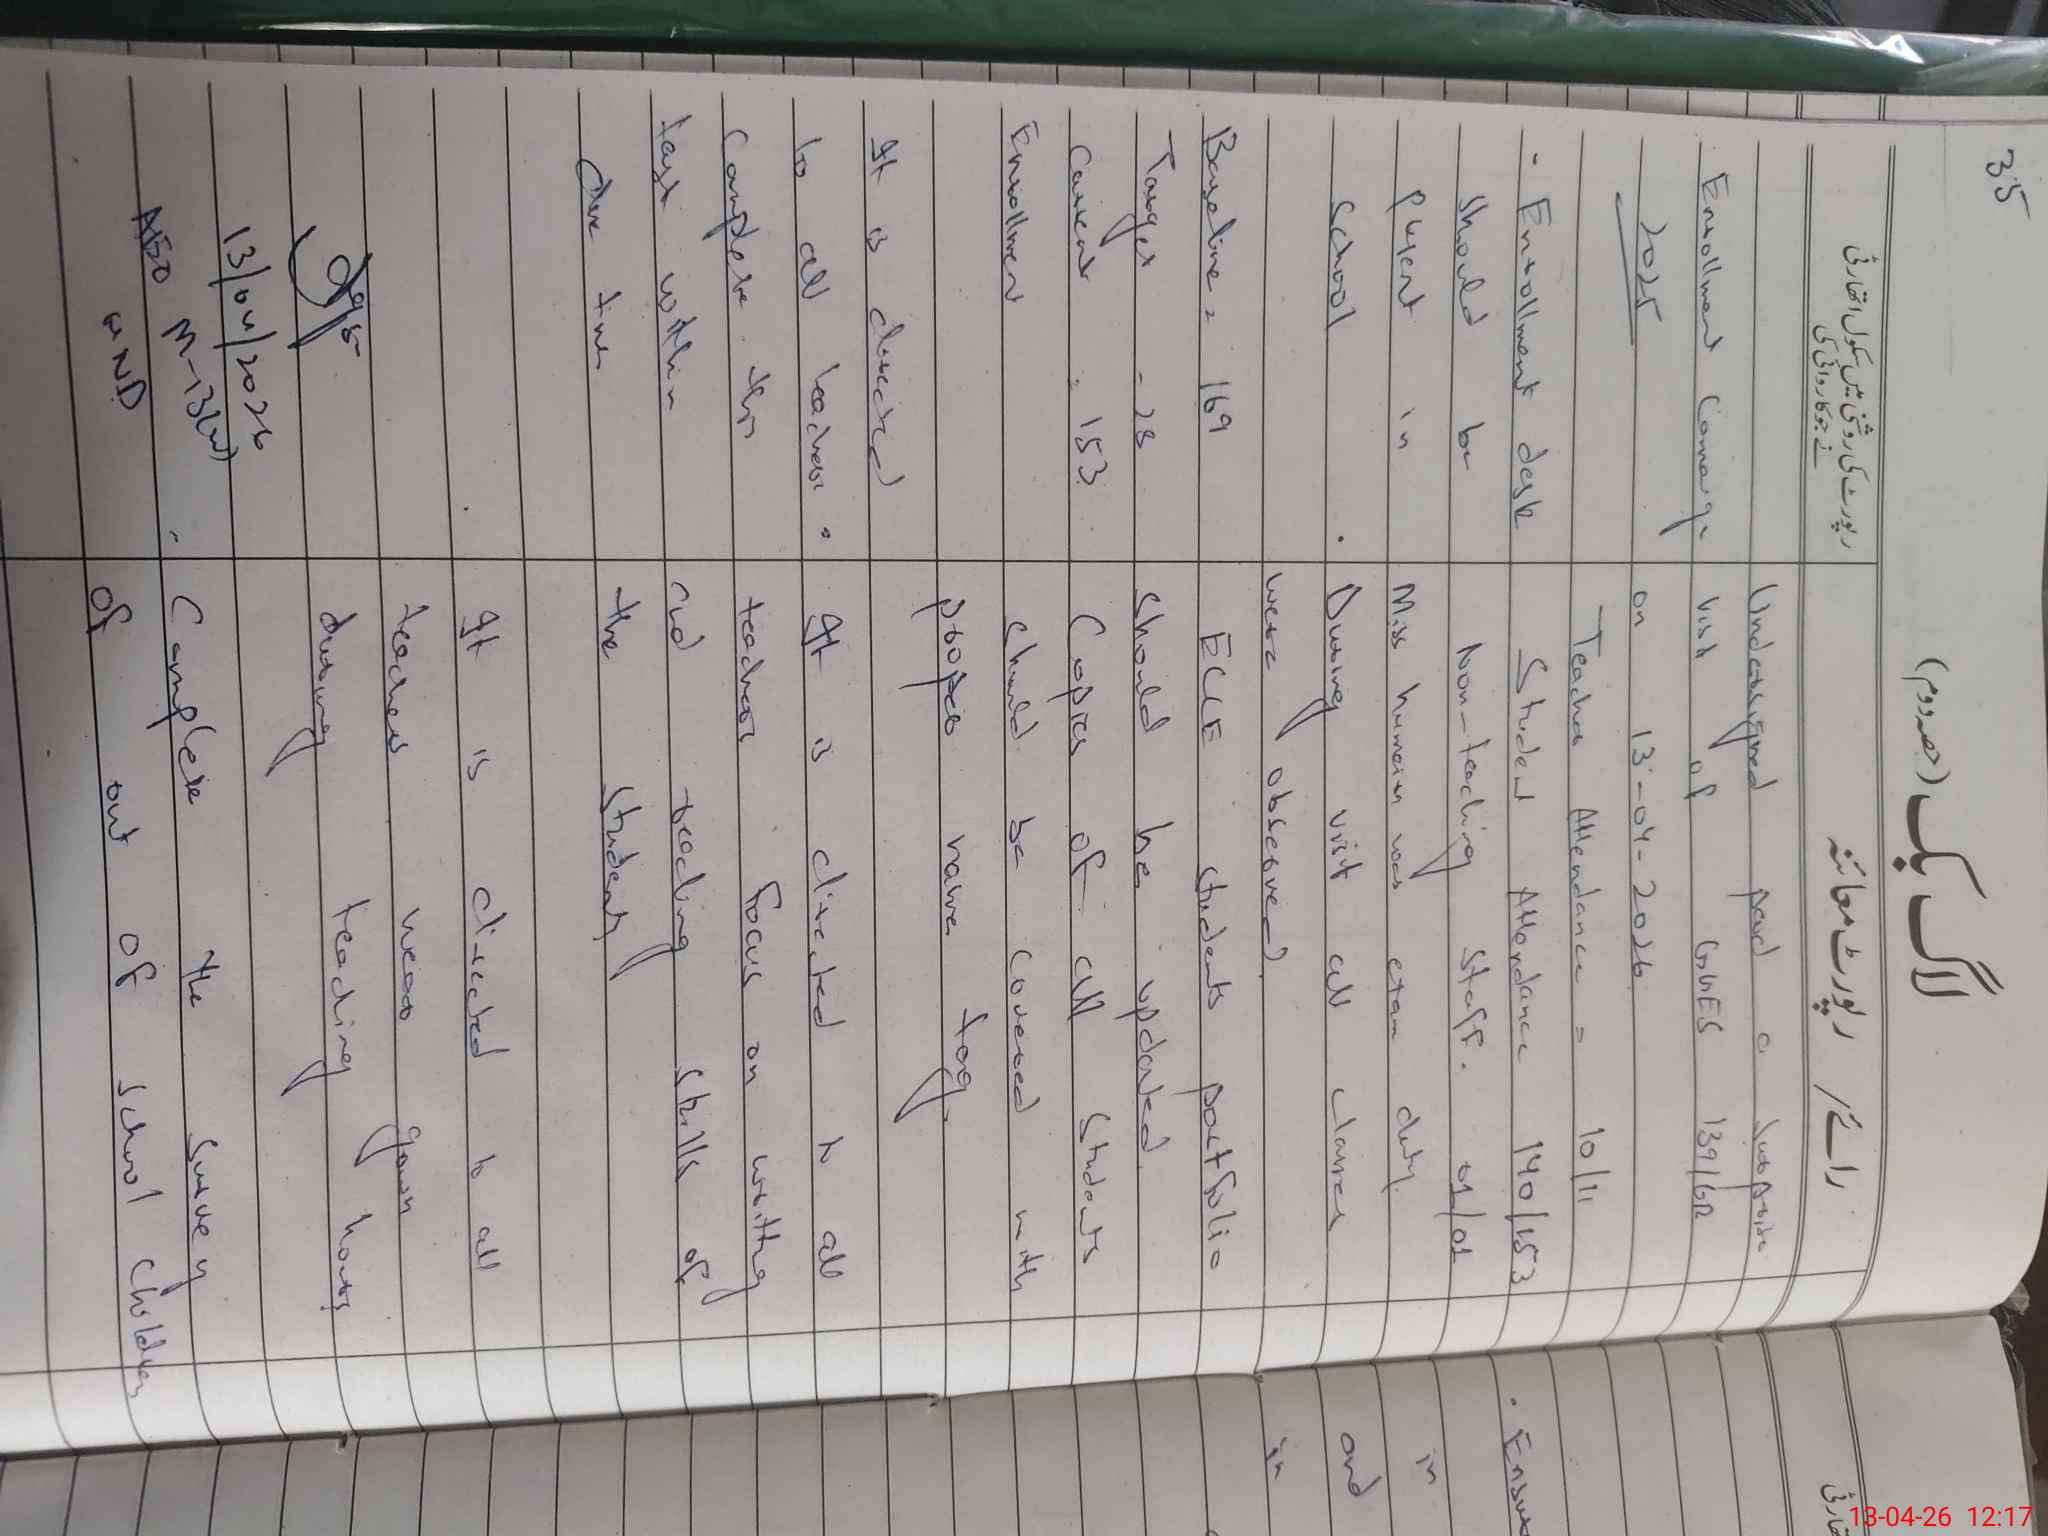 35
لاگ بک (حصہ دوم)
رپورٹ کی روشنی میں سکول اتھارٹی
نے جو کاروائی کی
رائے / رپورٹ معائنہ
Enrollment Campaign
2025
. Enrollment desk
should be
present in
School
Baseline = 169
Target - 28
Current = 153
Enrollment
It is directed
to all teachers
Complete this
task within
due time
13/04/2026
AEO M-13(W)
Undersigned paid a surprise
visit of GGES 139/6R
on 13-04-2026.
Teacher Attendance = 10/11
Student Attendance 140/153
Non-teaching Staff. 01/01
Miss Humaira was exam duty.
During visit all classes
were observed.
ECCE students portfolio
should be updated.
Copies of all students
should be covered with
proper name tag.
It is directed to all
teacher focus on writing
and reading skills of
the students
It is directed to all
teacher wear gown
during teaching hours
. Complete the survey
of out of school children
. Ensure
in
and
in
13-04-26 12:17